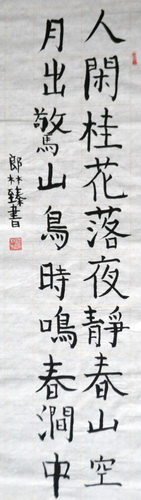 人閑桂花落夜靜春山空
月出驚山鳥時鳴春澗中
郎林臻書